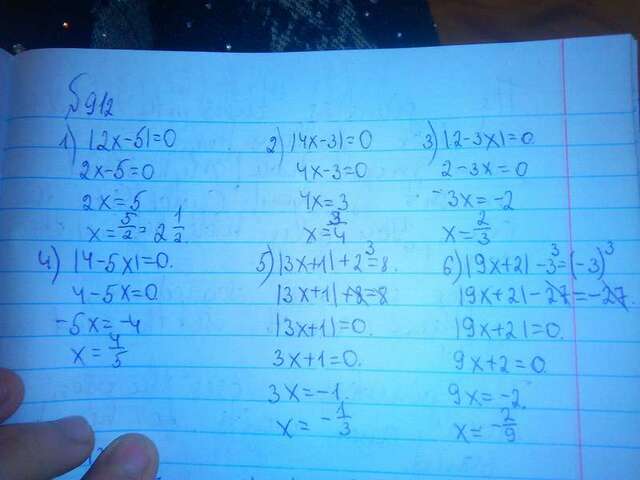 №912
1) |2x-5|=0
2x-5=0
2x=5
x=5/2=2 1/2
2) |4x-3|=0
4x-3=0
4x=3
x=3/4
3) |2-3x|=0
2-3x=0
-3x=-2
x=2/3
4) |4-5x|=0.
4-5x=0
-5x=-4
x=4/5
5) |3x+1|+2³=8
|3x+1|+8=8
|3x+1|=0.
3x+1=0.
3x=-1
x=-1/3
6) |9x+2|-3³=(-3)³
|9x+2|-27=-27.
|9x+2|=0.
9x+2=0.
9x=-2
x=-2/9